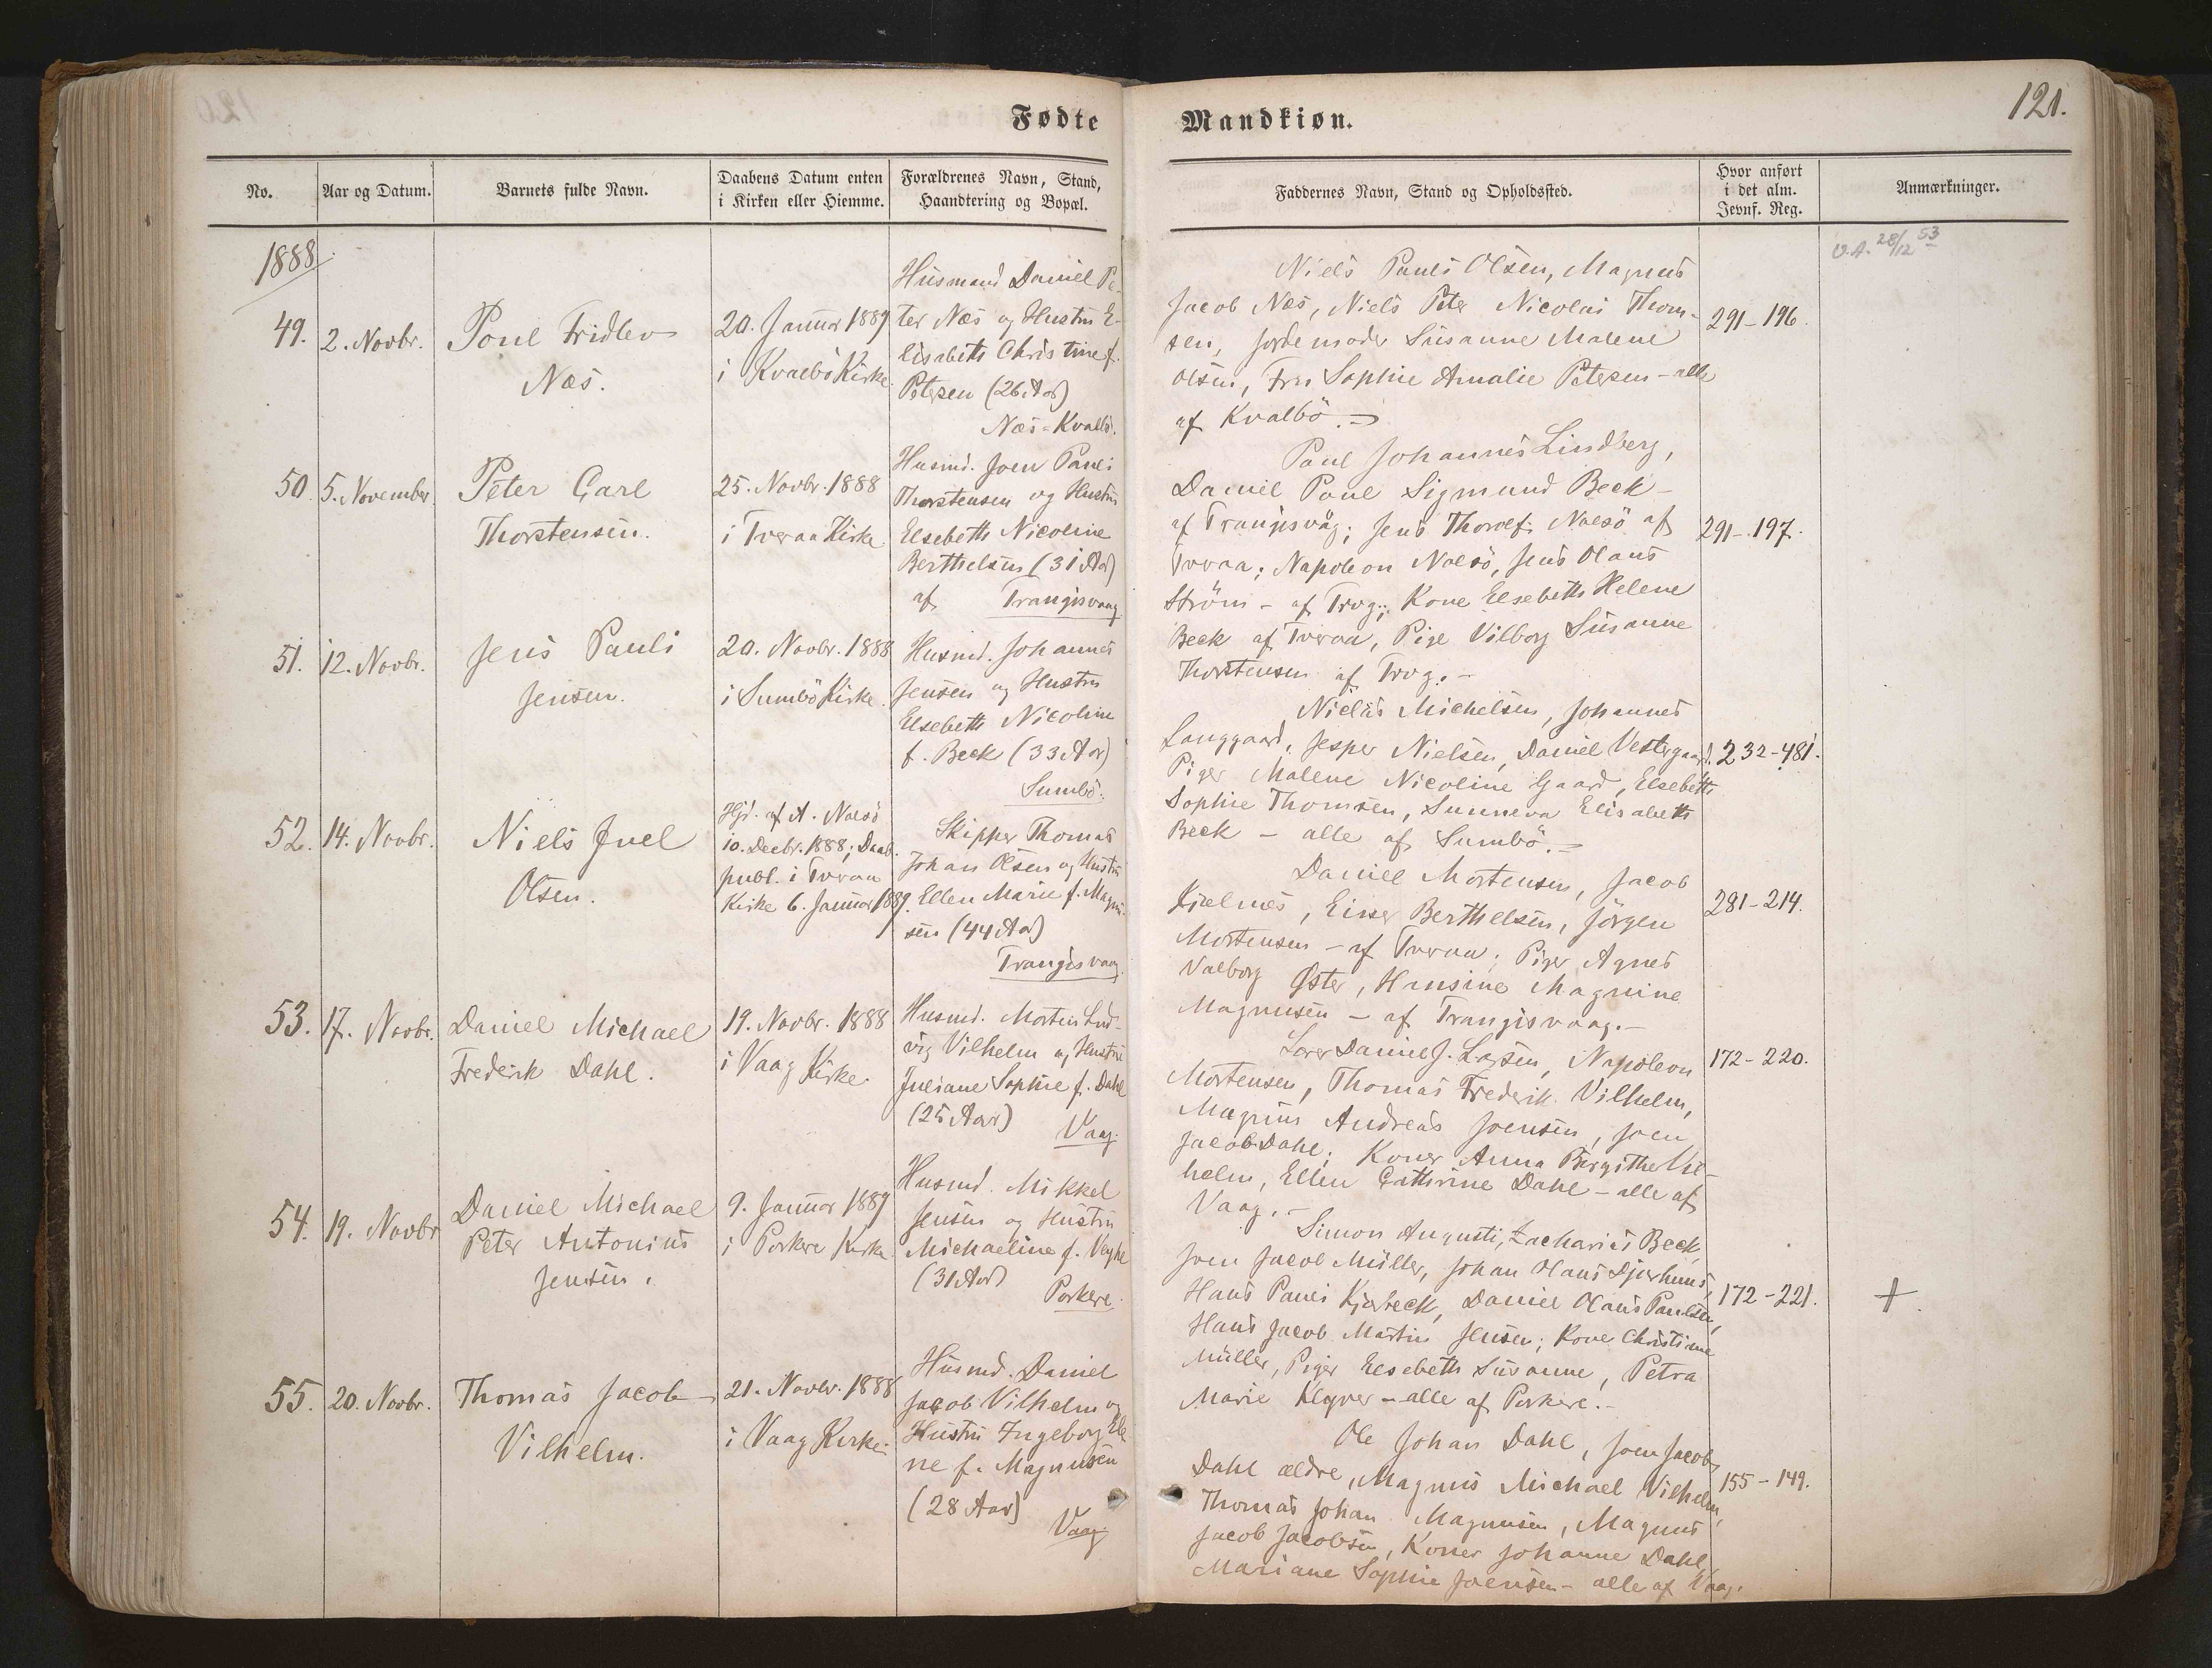 Fødte
Mandkiøn.
121.
No.
Aar og Datum.
Barnets fulde Navn.
Daabens Datum enten
i Kirken eller Hiemme.
Forældrenes Navn, Stand,
Haandtering og Bopæl.
Faddernes Navn, Stand og Opholdssted.
Hvor anført
i det alm.
Jevnf. Reg.
Anmærkninger.
1888
49.
2. Novbr.
Poul Fridlev
Næs.
20. Januar 1889
i Kvalbö Kirke.
Husmand Daniel Pe-
ter Næs og Hustru E-
lisabeth Christine f.
Petersen (26 Aar)
Næs-Kvalbö.
Niels Pauli Olsen, Magnus
Jacob Næs, Niels Peter Nicolai Thom-
sen, Jordemoder Susanne Malene
Olsen, Fru Sophie Amalie Petersen - alle
af Kvalbö.
291-196.
28/12 53
50.
5. November
Peter Carl
Thorstensen.
25. Novbr. 1888
i Tveraa Kirke
Husmd. Joen Pauli
Thorstensen og Hustru
Elsebeth Nicoline
Berthelsen (31 Aar)
af Trangisvaag
Paul Johannes Lindberg,
Daniel Poul Sigmund Beck -
af Trangisvåg; Jens Thorolf Nolsö af
Tveraa; Napoleon Nolsö, Jens Olaus
Ström - af Trvg.; Kone Elsebeth Helene
Beck af Tveraa, Pige Vilborg Susanne
Thorstensen af Trvg. -
291-197.
51.
12. Novbr.
Jens Pauli
Jensen.
20. Novbr. 1888
i Sumbö Kirke.
Husmd. Johannes
Jensen og Hustru
Elsebeth Nicoline
f. Beck (33 Aar)
Sumbö.
Niclas Michelsen, Johannes
Langgaard, Jesper Nielsen, Daniel Vestergaard.
Piger Malene Nicoline Gaard, Elsebeth
Sophie Thomsen, Sunneva Elisabeth
Beck - alle af Sumbö. -
232-481.
52.
14. Novbr.
Niels Juel
Olsen.
Hjd. af A. Nolsö
10. Decbr. 1888; Daab.
publ. i Tveraa
Kirke 6. Januar 1889.
Skipper Thomas
Johan Olsen og Hustru
Ellen Marie f. Magnu-
sen (44 Aar)
Trangisvaag.
Daniel Mortensen, Jacob
Kjælnes, Einer Berthelsen, Jörgen
Mortensen - af Tveraa; Piger Agnes
Valborg Øster, Hansine Magnine
Magnusen - af Trangisvaag. -
281-214.
53.
17. Novbr.
Daniel Michael
Frederik Dahl.
19. Novbr. 1888
i Vaag Kirke.
Husmd. Morten Lud-
vig Vilhelm og Hustru
Juliane Sophie f. Dahl
(25 Aar)
Vaag.
Lærer Daniel J. Larsen, Napoleon
Mortensen, Thomas Frederik Vilhelm,
Magnus Andreas Joensen, Joen
Jacob Dahl; Koner Anna Birgithe Vil-
helm, Ellen Cathrine Dahl - alle af
Vaag. -
172-220.
54.
19. Novbr
Daniel Michael
Peter Antonius
Jensen.
9. Januar 1889
i Porkere Kirke
Husmd. Mikkel
Jensen og Hustru
Michaeline f. Veyhe
(31 Aar)
Porkere.
Simon Augusti, Zacharias Beck,
Joen Jacob Müller, Johan Olaus Djurhuus,
Hans Pauli Kjærbeck, Daniel Olaus Paulsen,
Hans Jacob Martin Jensen; Kone Christiane
Müller, Piger Elsebeth Susanne, Petra
Marie Klejver - alle af Porkere. -
172-221.
+
55.
20. Novbr.
Thomas Jacob
Vilhelm.
21. Novbr. 1888
i Vaag Kirke.
Husmd. Daniel
Jacob Vilhelm og
Hustru Ingeborg Ele
ne f. Magnusen
(28 Aar)
Vaag
Ole Johan Dahl, Joen Jacob
Dahl ældre, Magnus Michael Vilhelm,
Thomas Johan Magnusen, Magnus
Jacob Jacobsen, Koner Johanne Dahl,
Mariane Sophie Joensen - alle af Vaag.
155-149.